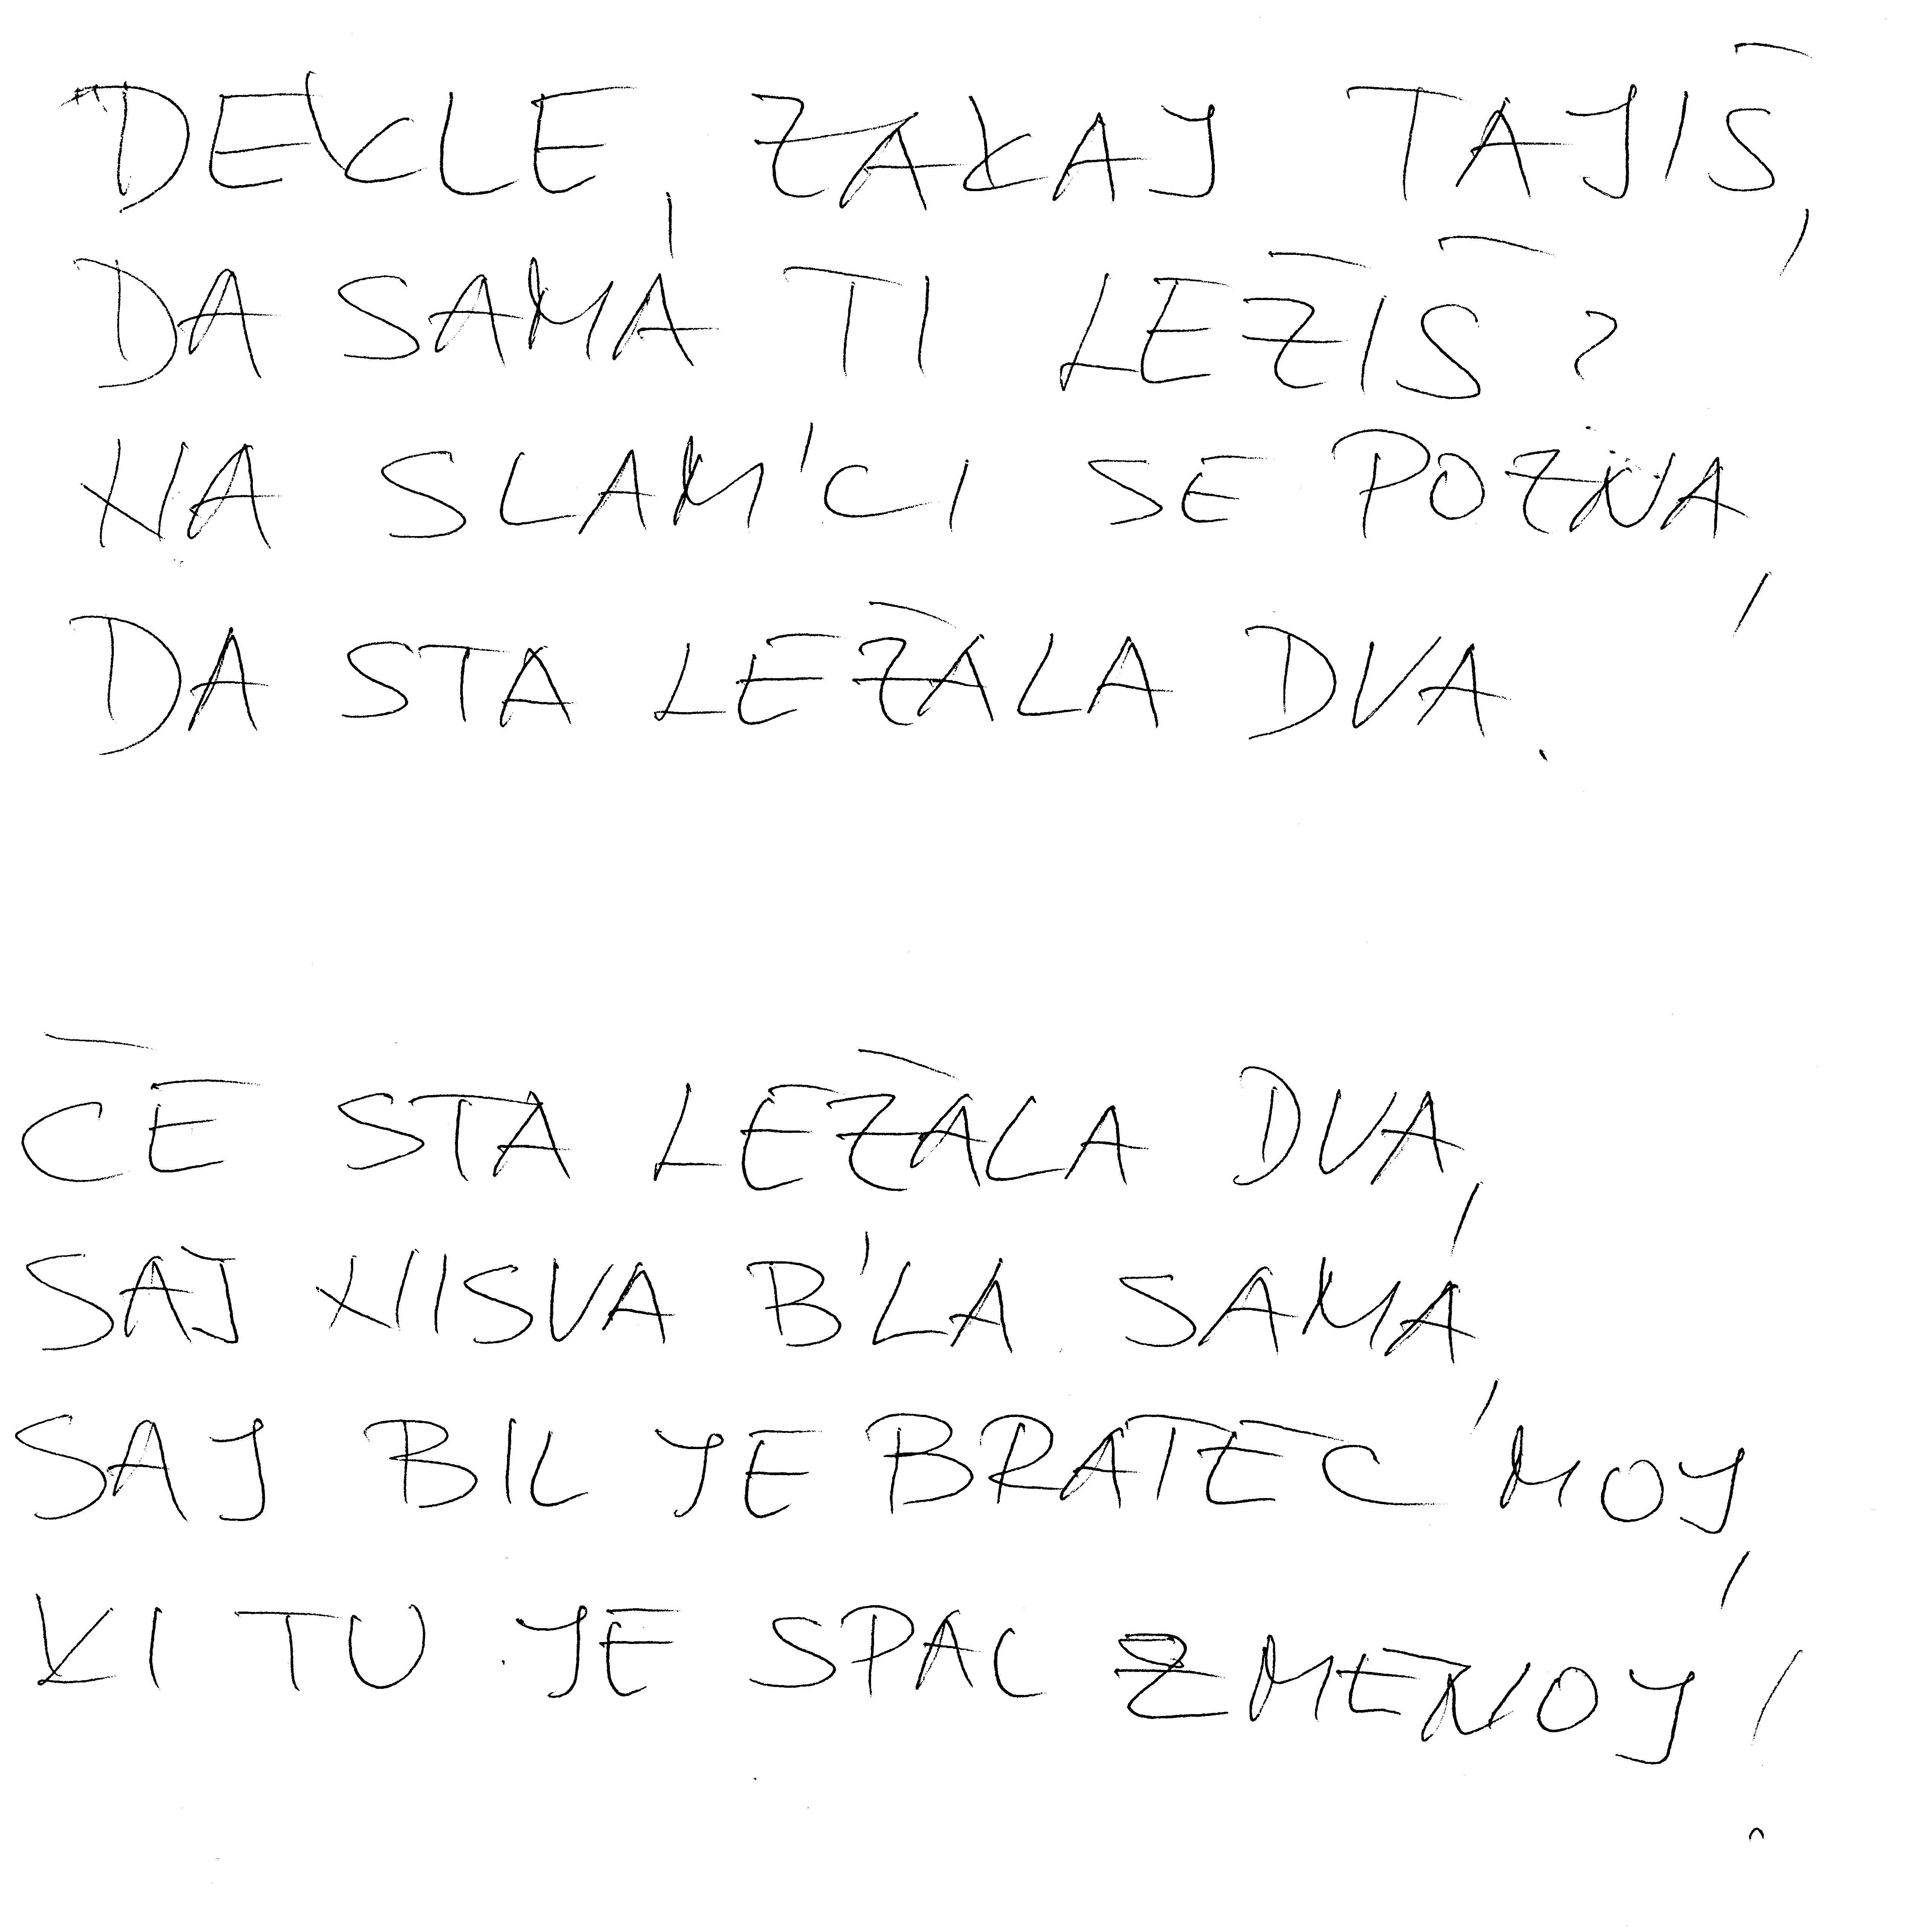 "DEKLE, ZAKAJ TAJIŠ,
DA SAMA TI LEŽIŠ?
NA SLAM'CI SE POZNA,
DA STA LEŽALA DVA.
ČE STA LEŽALA DVA,
SAJ NISVA B'LA SAMA,
SAJ BIL JE BRATEC MOJ,
KI TU JE SPAL Z MENOJ!